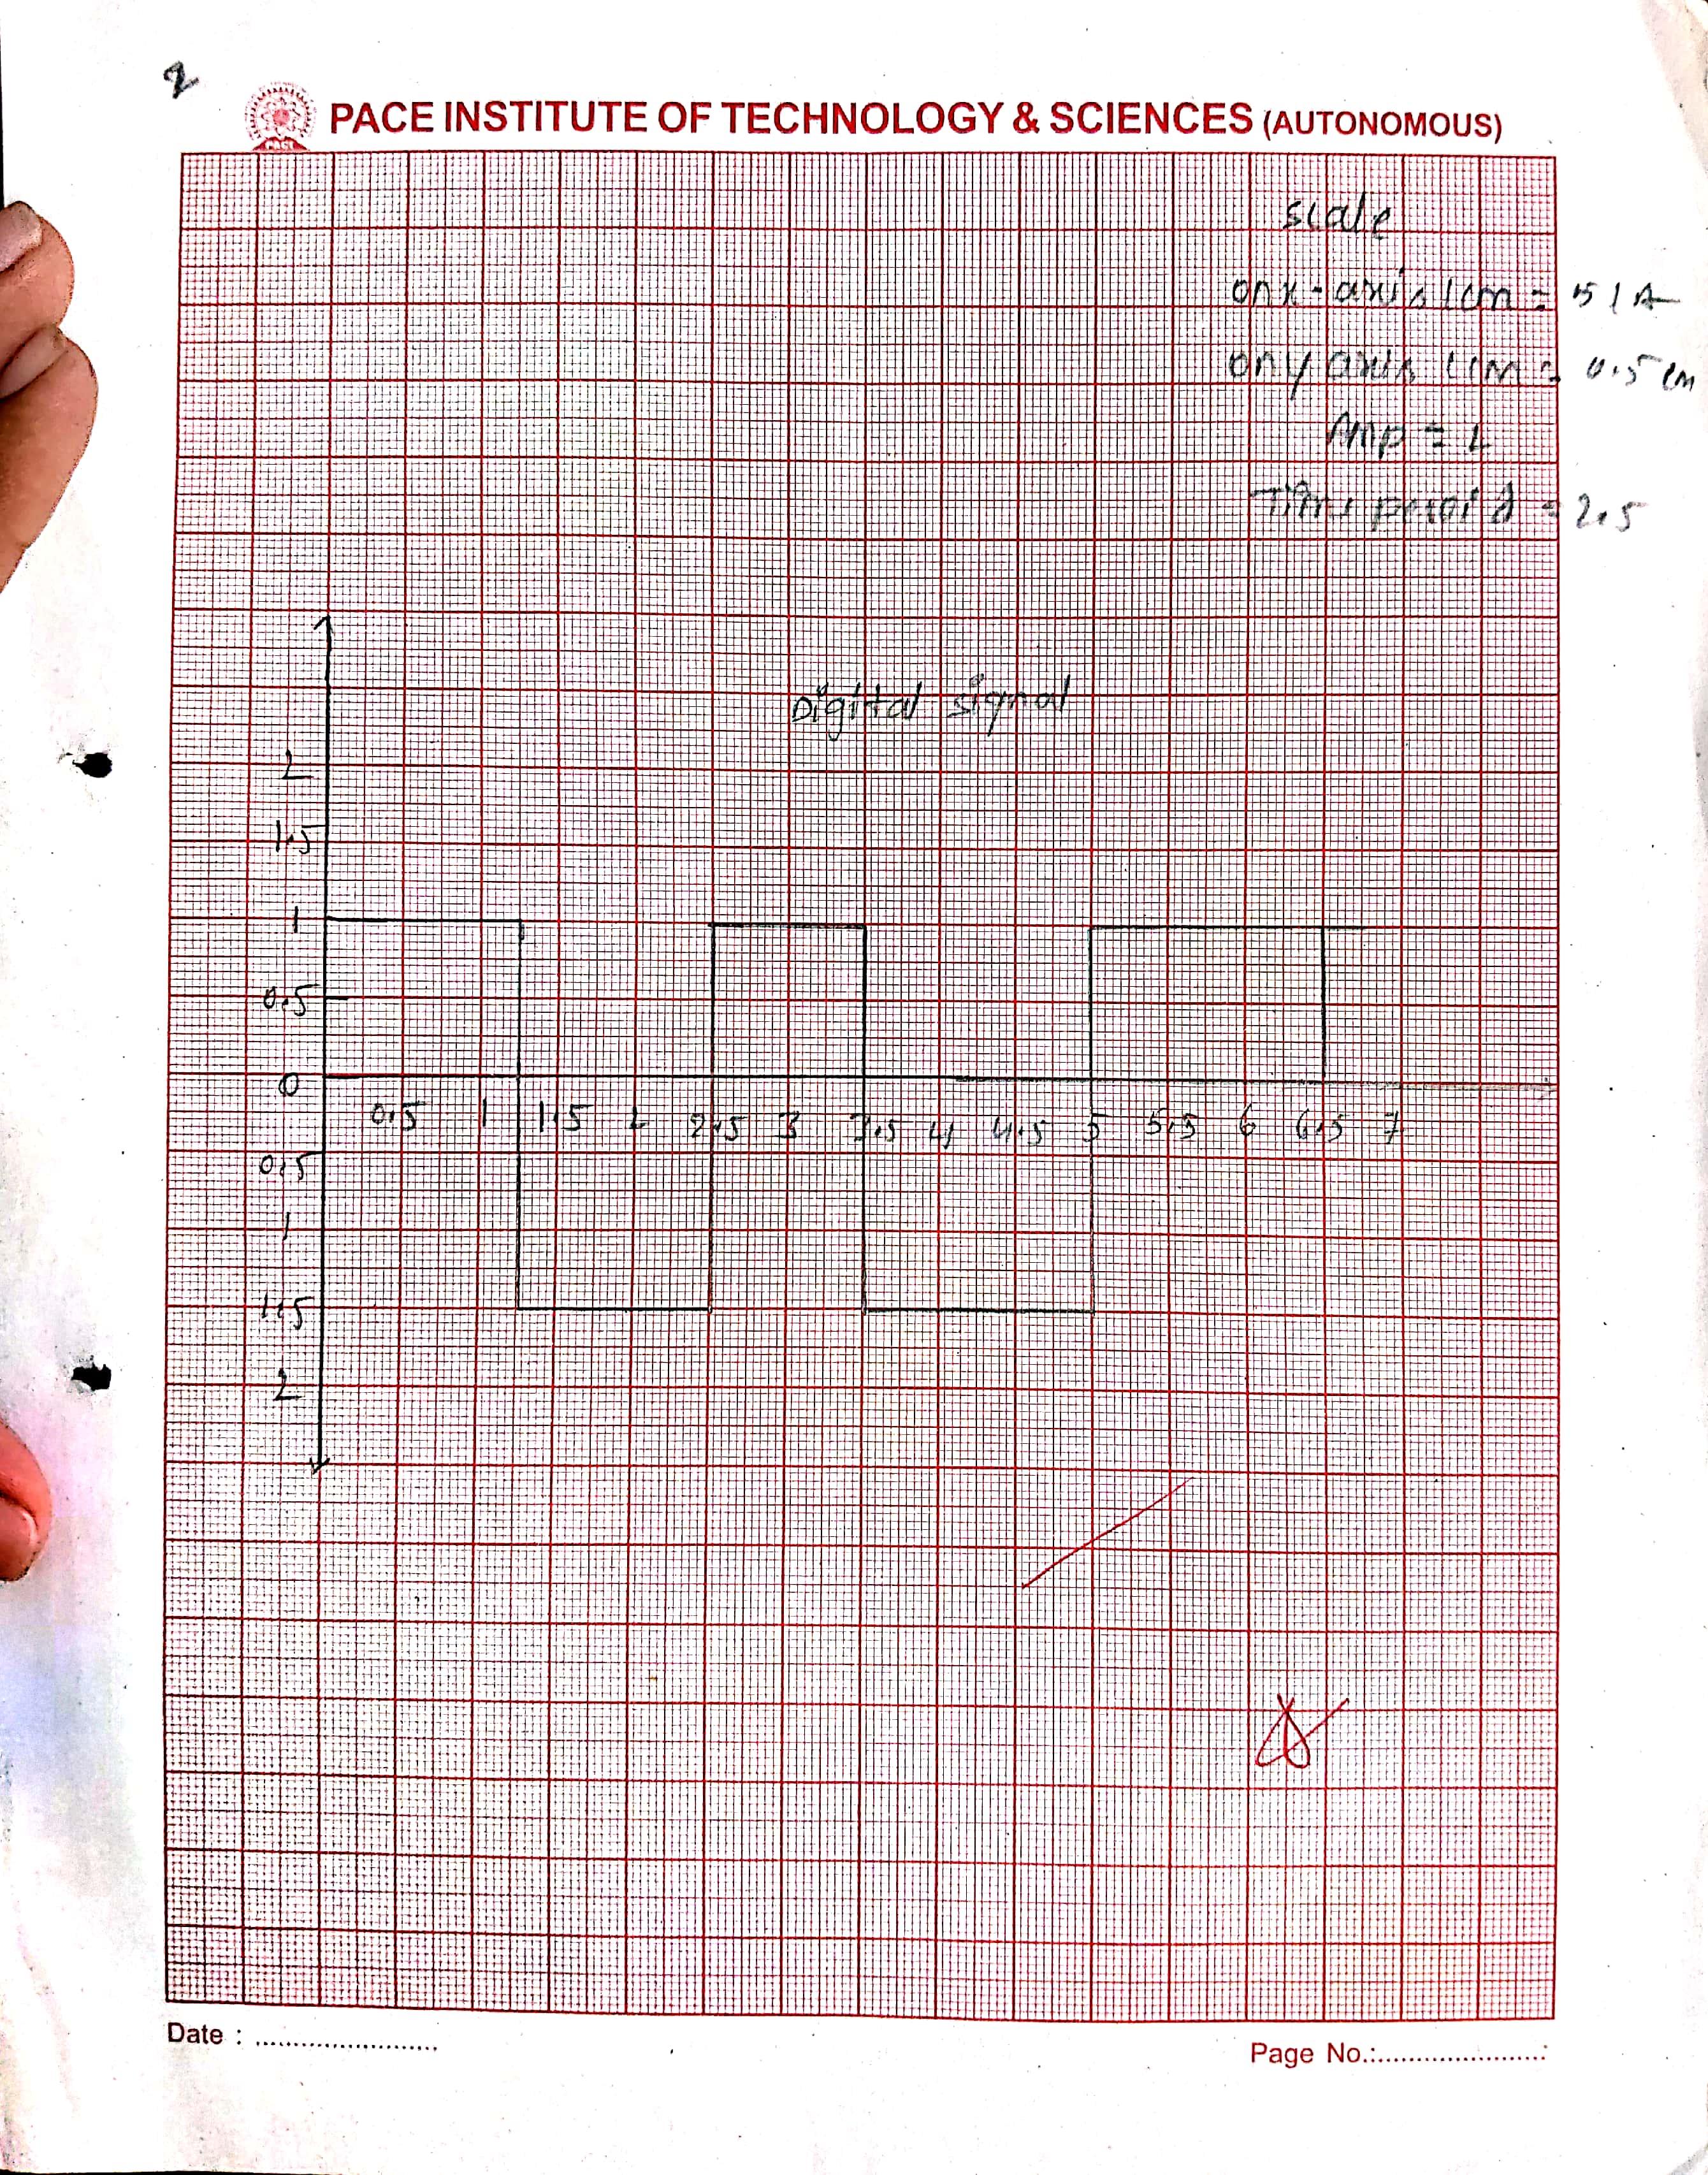 2
PACE INSTITUTE OF TECHNOLOGY & SCIENCES (AUTONOMOUS)
PACE
scale
on x-axis 1cm =
on y axis 1cm = 0.5 cm
Amp = 1
= 2.5
Digital signal
2
1.5
1
0.5
0
0.5 1 1.5 2 2.5 3 3.5 4 4.5 5 5.5 6 6.5 7
0.5
1
1.5
2
Date : ........................
Page No.:......................